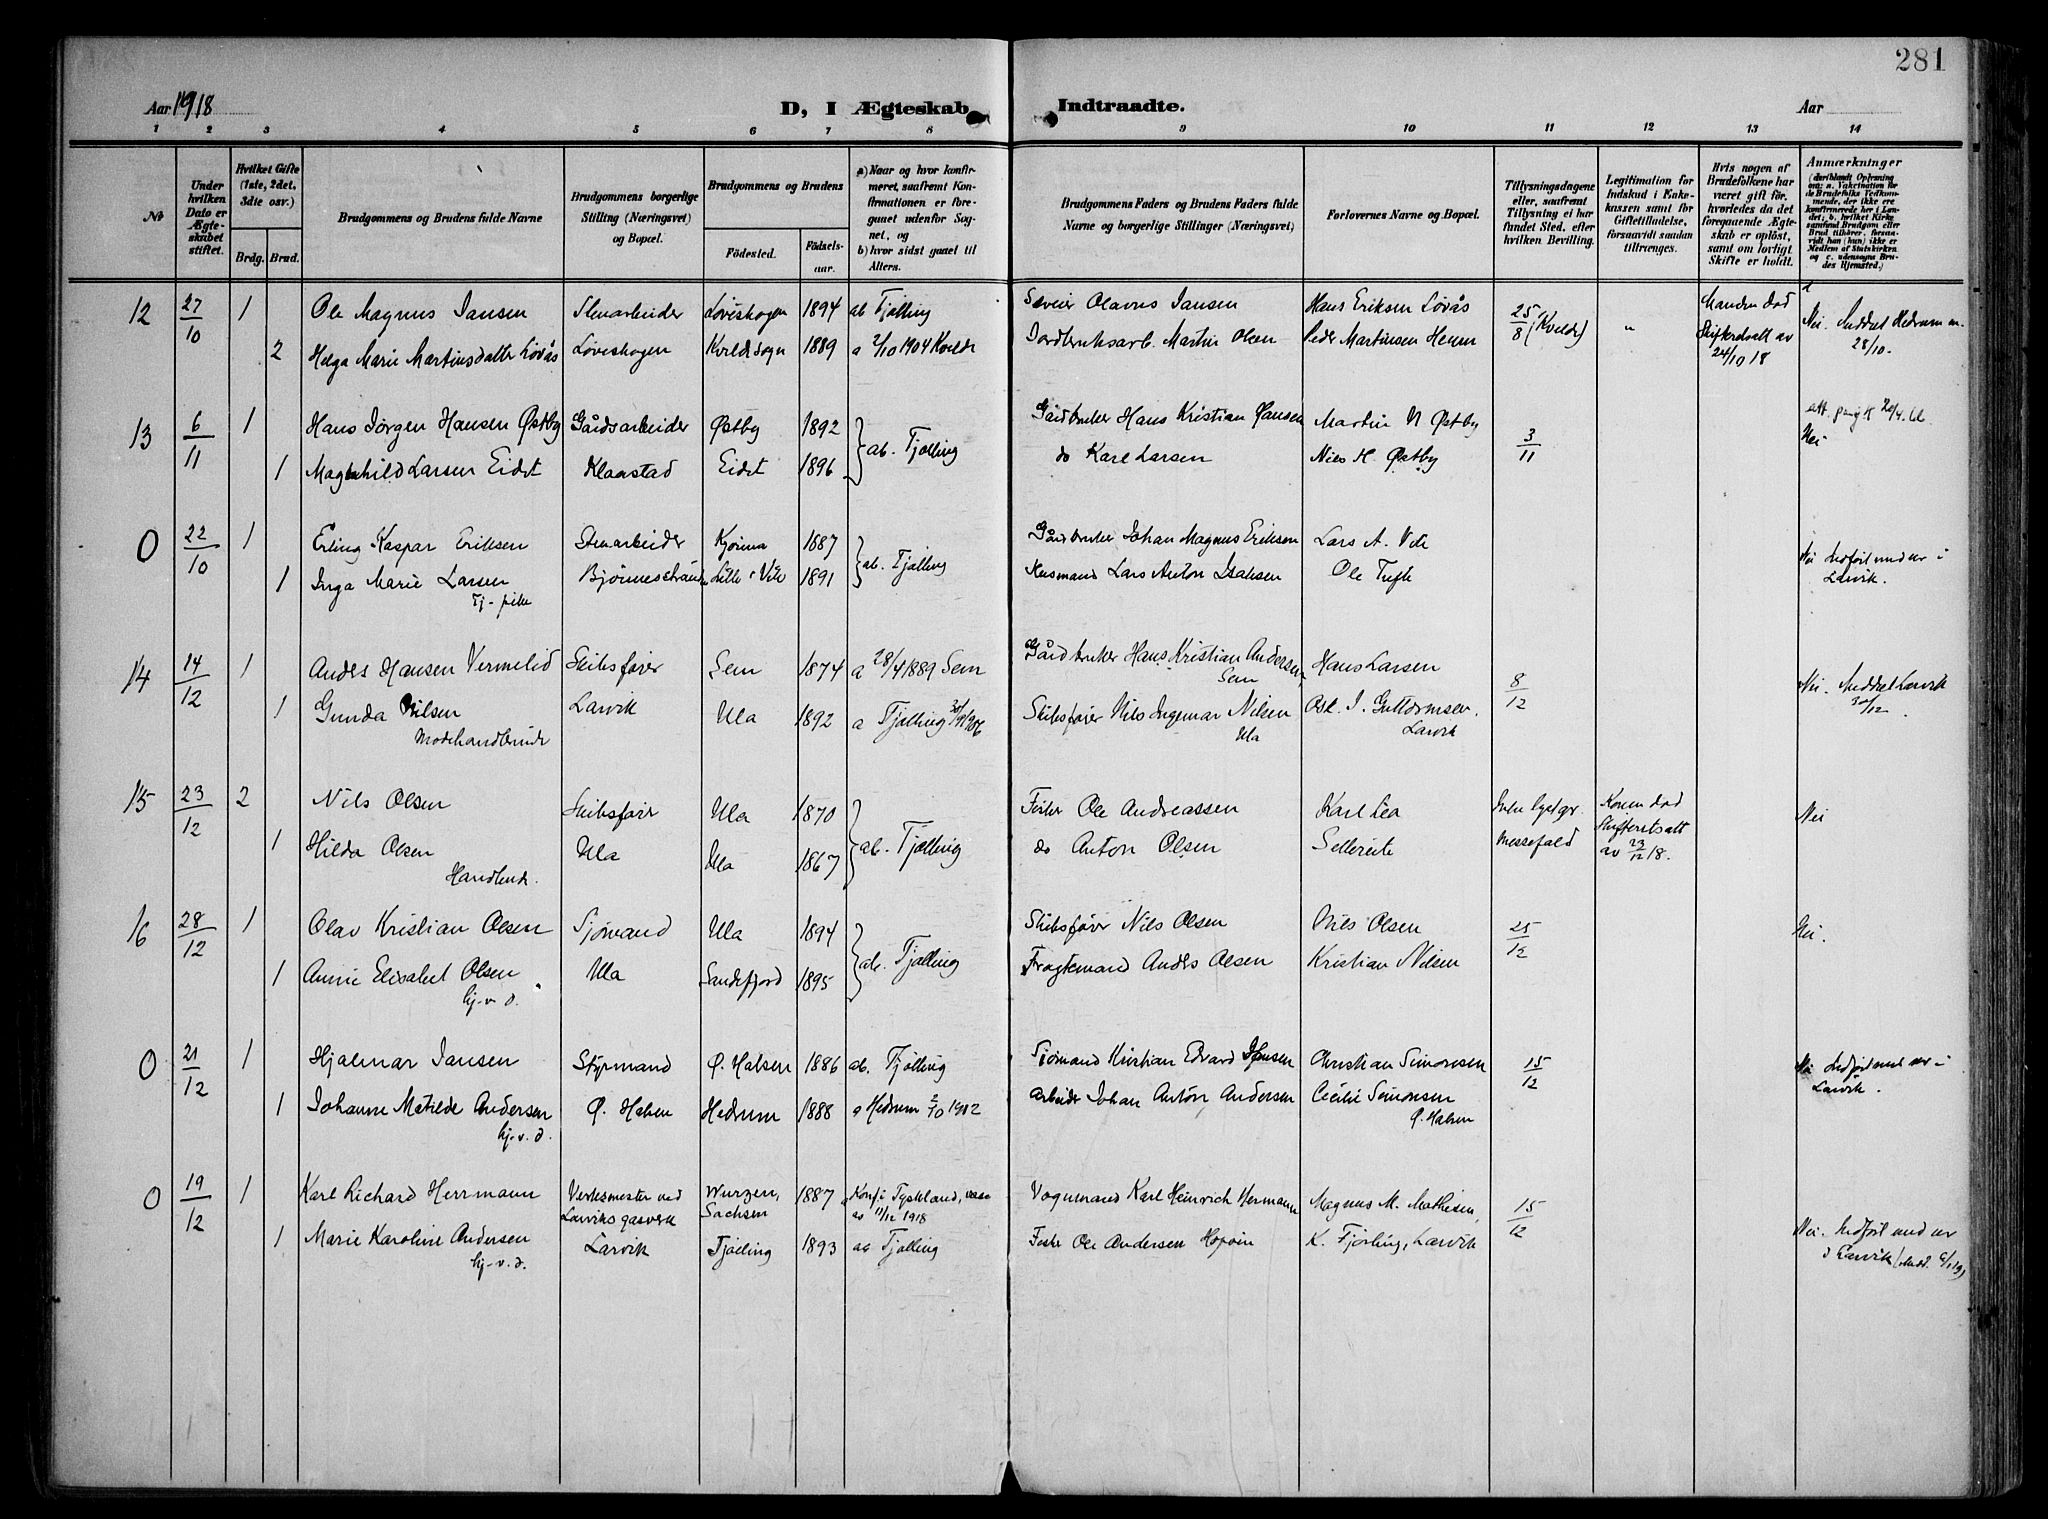 281
Aar 1918
D, I Ægteskab
Indtraadte.
Aar
1 2 3 4 5 6 7 8 9 10 11 12 13 14
№
Under hvilken Dato er Ægteskabet stiftet.
Hvilket Gifte (1ste, 2det, 3dte osv.)
Brdg. Brud.
Brudgommens og Brudens fulde Navne
Brudgommens borgerlige Stilling (Næringsvei) og Bopæl.
Brudgommens og Brudens
Födested.
Födselsaar.
a) Naar og hvor konfirmeret, saafremt Konfirmationen er foregaaet udenfor Sognet, og
b) hvor sidst gaaet til Alters.
Brudgommens Faders og Brudens Faders fulde Navne og borgerlige Stillinger (Næringsvei)
Forlovernes Navne og Bopæl.
Tillysningsdagene eller, saafremt Tillysning ei har fundet Sted, efter hvilken Bevilling.
Legitimation for Indskud i Enkekassen samt for Giftetilladelse, forsaavidt saadan tiltrænges.
Hvis nogen af Brudefolkene har været gift för, hvorledes da det foregaaende Ægteskab er oplöst, samt om lovligt Skifte er holdt.
Anmærkninger (deriblandt Oplysning om: a. Vaktination for de Brudefolks Vedkommende, der ikke ere konfirmerede her i Landet; b. hvilket Kirkesamfund Brudgom eller Brud tilhører, forsaavidt han (hun) ikke er Medlem af Statskirken og c. udensogns Brudes Hjemsted.)
12 27/10 1 Ole Magnus Jansen Stenarbeider Løveskogen 1894 ab Tjølling Jansen Hans Eriksen Løvås 25/8 (Kvelde) " Manden død Nei. Meddelt Hedrum
2 Helga Marie Martinsdatter Løvås Løveskogen Kvelde sogn 1889 a 2/10 1904 Kvelde Jordbruksarb. Martin Olsen Peder Martinsen Skifteretsatt av 24/10 18 28/10.
13 6/11 1 Hans Jørgen Hansen Østby Gårdsarbeider Østby 1892 ab. Tjølling Gårdbruker Hans Kristian Hansen Martin N Østby 3/11 Nei
1 Magnhild Larsen Eidet Klaastad Eidet 1896 do Karl Larsen Nils H. Østby
0 22/10 1 Erling Kaspar Eriksen Stenarbeider 1887 ab. Tjølling Gårdbruker Johan Magnus Eriksen Lars A. Vete Nei Indført med nr i
1 Inga Marie Larsen Bjønnestrand 1891 Husmand Lars Anton Isaksen Ole Tufte Larvik.
Tj-pike
14 14/12 1 Anders Hansen Vermelid Skibsfører Sem 1874 a 28/4 1889 Sem Gårdbruker Hans Kristian Andersen, Sem Hans Larsen 8/12 Nei. Meddelt Larvik 30/12.
1 Gunda Nilsen Larvik Ula 1892 a Tjølling Skibsfører Nils Ingemar Nilsen Ula Osk. I. Guttormsen. Larvik
Modehandlerinde
15 23/12 2 Nils Olsen Skibsfører Ula 1870 ab. Tjølling Fisker Ole Andreassen Karl Lea Konen død Nei
1 Hilda Olsen Ula Ula 1867 do Anton Olsen Messefald Skifteretsatt av 23/12 18.
Handlende.
16 28/12 1 Olav Kristian Olsen Sjømand Ula 1894 ab. Tjølling Skibsfører Nils Olsen Nils Olsen 25/12 Nei.
1 Annie Elisabet Olsen Ula Sandefjord 1895 Fragtemand Anders Olsen Kristian Nilsen
hj-v. d.
0 21/12 1 Hjalmar Jansen Styrmand Ø. Halsen 1886 ab. Tjølling Sjømand Kristian Edvard Jansen Christian Simonsen 15/12 Nei Indført med nr i
1 Johanne Matilde Andersen Ø. Halsen Hedrum 1888 a Hedrum 2/10 1902 Arbeider Johan Anton Andersen Cecilie Simonsen Larvik.
hj-v. d. Ø. Halsen
0 19/12 1 Karl Richard Herrmann Verksmester ved Wurzen, Sachsen 1887 Konf. i Tyskland, 11/12 1918 Vognmand Karl Heinrich Hermann Magnus M. Mathisen, 15/12 Nei. Indført med nr
Larviks gasverk
1 Marie Karoline Andersen Larvik Tjølling 1893 aa Tjølling Fisker Ole Andersen K. Fjørling, Larvik i Larvik (Medd. 6/1 19)
hj-v. d.